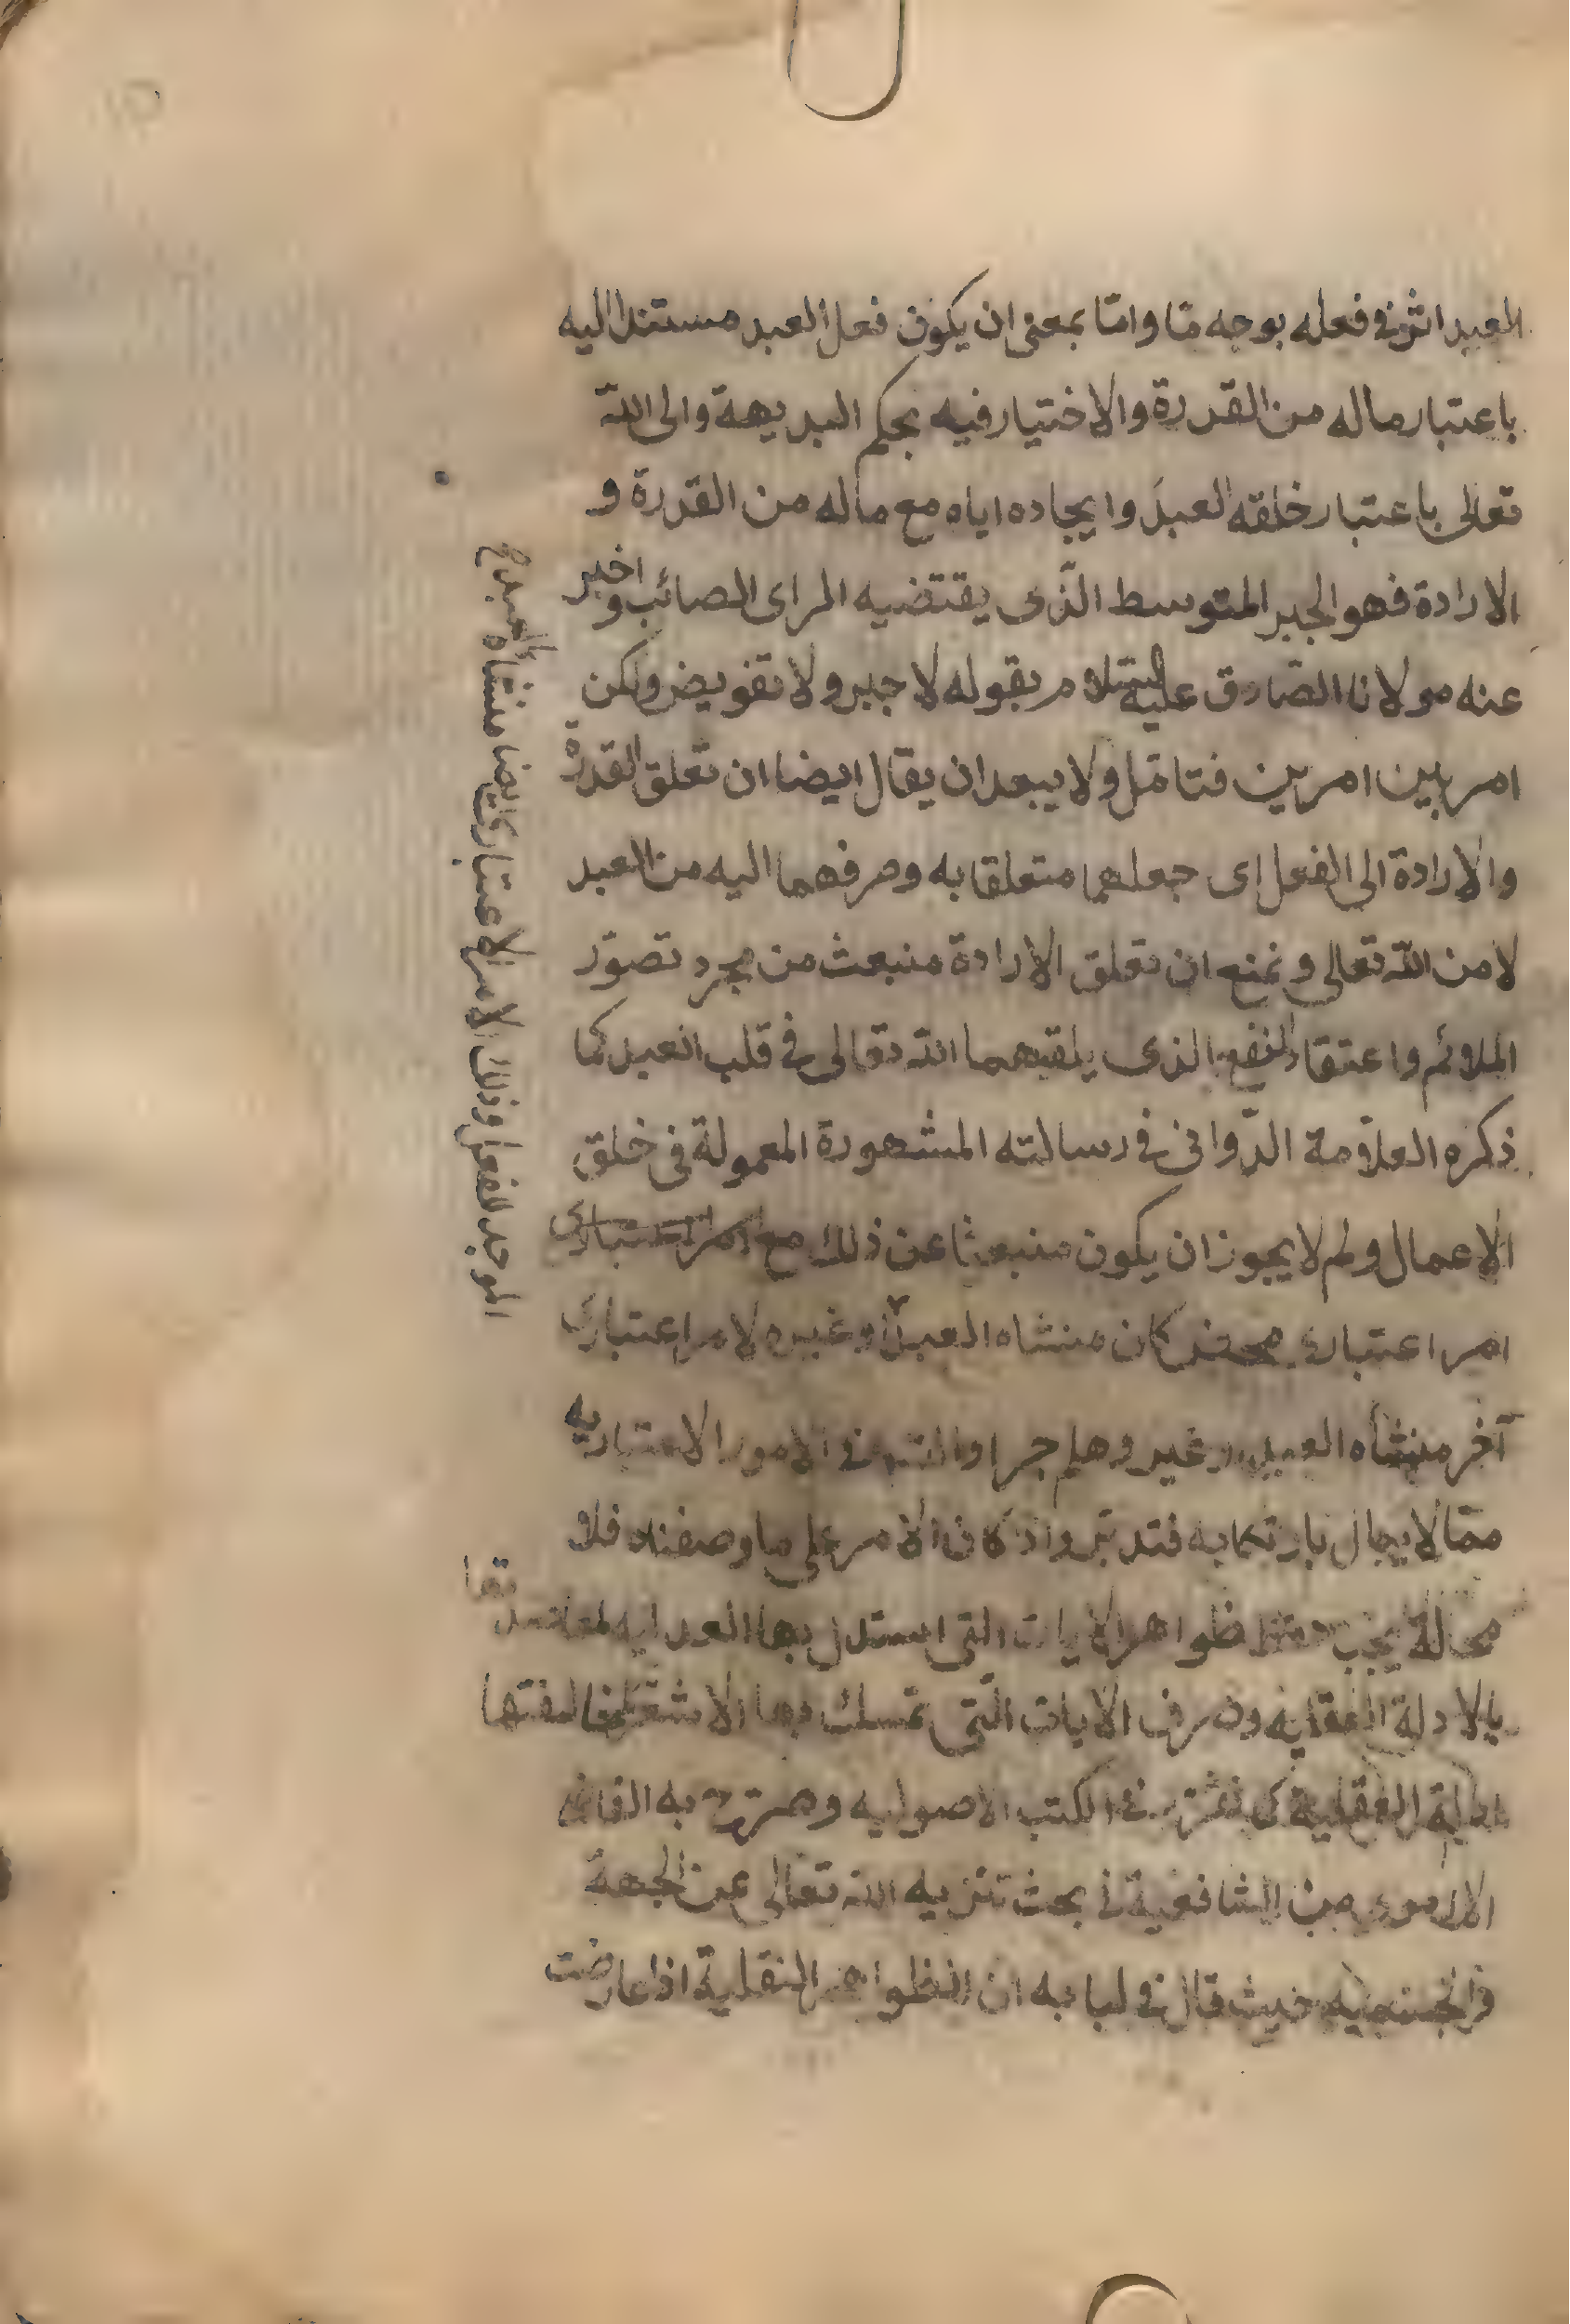 العبد اثر فى فعله بوجه ما واما بمعنى ان يكون فعل العبد مستندا اليه
باعتبار ماله من القدرة والاختيار فيه بحكم البديهة والى الله
تعالى باعتبار خلقه العبد وايجاده اياه مع ماله من القدرة و
الارادة فهو الجبر المتوسط الذى يقتضيه الراى الصائب واخبر
عنه مولانا الصادق عليه السلام بقوله لا جبر ولا تفويض ولكن
امر بين امرين فتامل ولا يبعد ان يقال ايضا ان تعلق القدرة
والارادة الى الفعل اى جعلهما متعلقا به وصرفهما اليه من العبد
لا من الله تعالى ونمنع ان تعلق الارادة منبعث من مجرد تصور
الملائم واعتقاد النفع الذى يلقيهما الله تعالى فى قلب العبد كما
ذكره العلامة الدوانى فى رسالته المشهورة المعمولة فى خلق
الاعمال ولم لا يجوز ان يكون منبعثا عن ذلك مع
امر اعتبارى محض كان منشاه العبد او غيره لامر اعتبارى
آخر منشاه العبد او غير وهلم جرا والتس فى الامور الاعتباريه
مما لا يبال بارتكابه فتدبر واذ كان الامر على ما وصفناه فلا
محالة يجب حفظ ظواهر الايات التى استدل بها العدليه لمعاضدتها
بالادلة العقليه وصرف الايات التى تمسك بها الاشعرى لمخالفتها
الادلة العقلية كما تقرر فى الكتب الاصوليه وصرح به القاضى
الارموى من الشافعية فى بحث تنزيه الله تعالى عن الجهة
والجسميه حيث قال فى لبابه ان الظواهر النقلية اذا عارضت
الموجد للفعل وذلك الامر الاعتبارى ايضا منشاه العبد